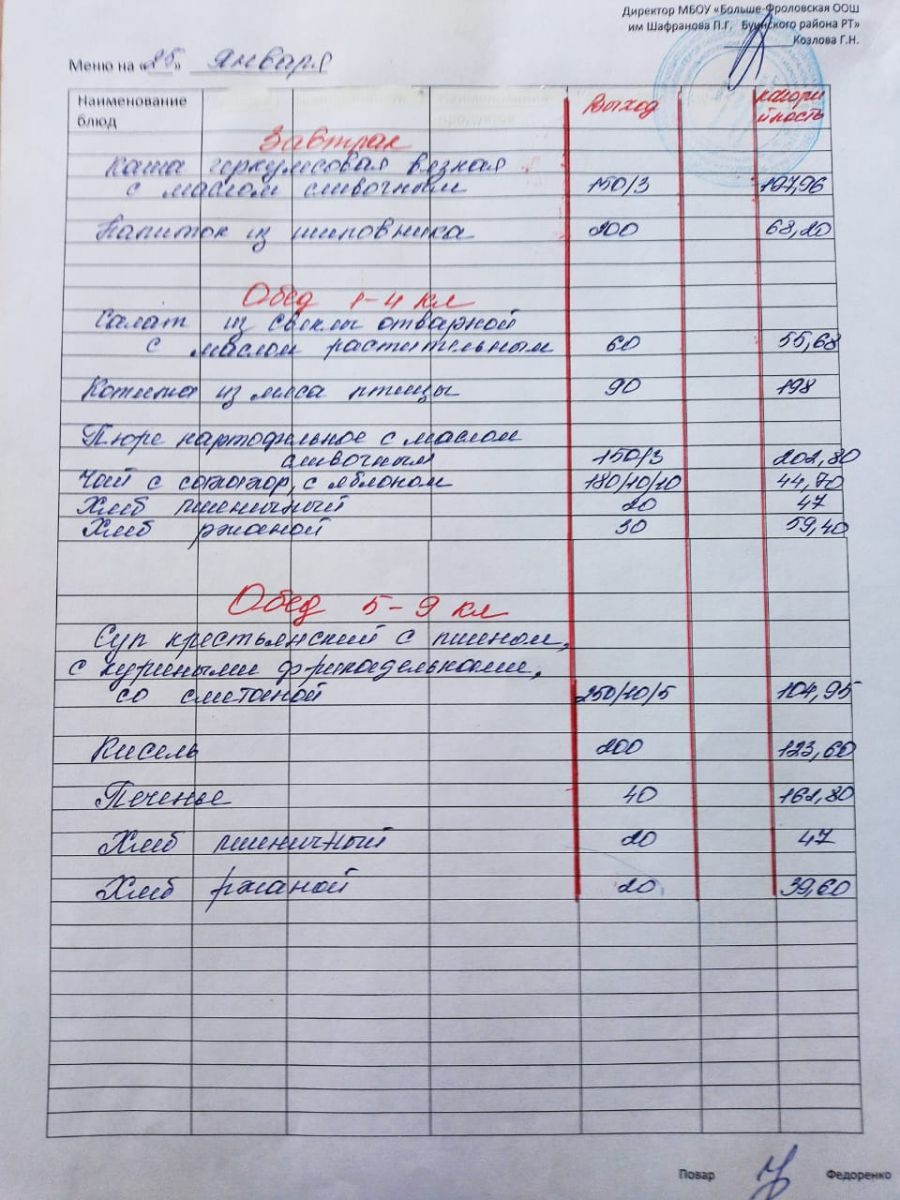 Директор МБОУ «Больше-Фроловская ООШ
им Шафранова П.Г. Буинского района РТ»
Козлова Г.Н.
Меню на «25» января
Наименование блюд
Выход
калори йность
Завтрак
Каша геркулесовая вязкая
с маслом сливочным 150/3 197,96
Напиток из шиповника 200 68,20
Обед 1-4 кл
Салат из свеклы отварной
с маслом растительным 60 55,68
Котлета из мяса птицы 90 198
Пюре картофельное с маслом
сливочным 150/3 202,80
Чай с сахаром, с яблоком 180/10/10 44,70
Хлеб пшеничный 20 47
Хлеб ржаной 30 59,40
Обед 5-9 кл
Суп крестьянский с пшеном,
с куриными фрикадельками,
со сметаной 250/10/5 104,95
Кисель 200 123,60
Печенье 40 162,80
Хлеб пшеничный 20 47
Хлеб ржаной 20 39,60
Повар Федоренко